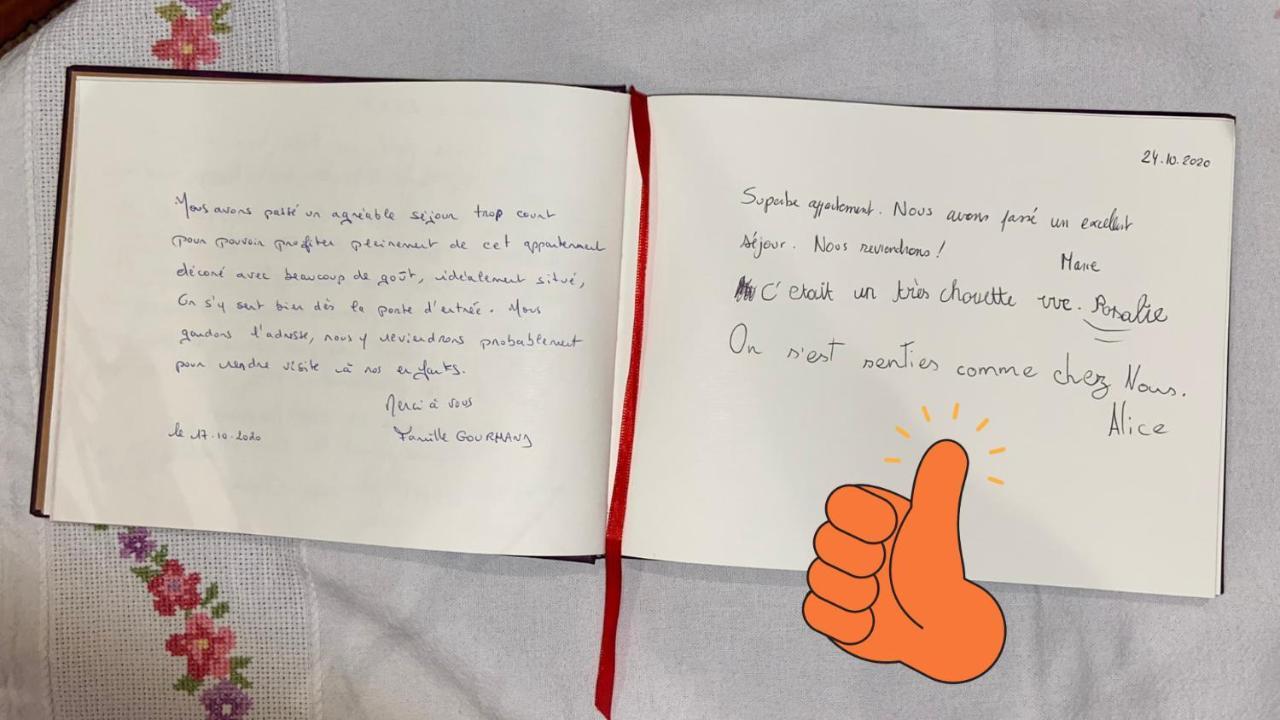 Nous avons passé un agréable séjour trop court
pour pouvoir profiter pleinement de cet appartement
décoré avec beaucoup de goût, idéalement situé,
On s'y sent bien dès la porte d'entrée. Nous
gardons l'adresse, nous y reviendrons probablement
pour rendre visite à nos enfants.
Merci à vous
le 17.10.2020 Famille GOURMAND
24.10.2020
Superbe appartement. Nous avons passé un excellent
séjour. Nous reviendrons !
Marie
C'etait un très chouette Rosalie
On s'est senties comme chez Nous.
Alice